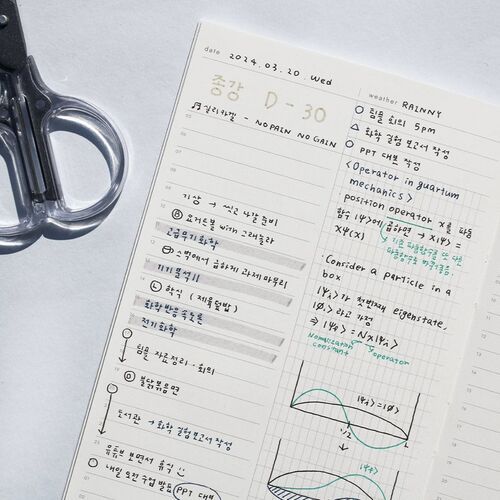 date 2024. 03. 20 Wed
종강 D - 30
실리카겔 - NO PAIN NO GAIN
기상 → 씻고 나갈 준비
Ⓑ 요거트볼 with 그래놀라
고급무기화학
스벅에서 급하게 과제 마무리
기기분석 II
Ⓛ 학식 (제육덮밥)
화학반응속도론
전기화학
팀플 자료정리 · 회의
Ⓓ 불닭볶음면
도서관 → 화학실험보고서 작성
유튜브 보면서 휴식
내일 오전 수업 발표 PPT 대본
weather RAINNY
팀플 회의 5pm
화학 실험 보고서 작성
PPT 대본 작성
<Operator in quartum
mechanics>
position operator x를 파동
함수 |Ψ⟩에 곱하면 → x|Ψ⟩ =
XΨ(x)
Consider a particle in a
box
|Ψi⟩가 첫번째 eigenstate,
|Ø⟩ 라고 가정
⇒ |Ψf⟩ = Nx|Ψi⟩
Normalization operator
constant
|Ψi⟩=|Ø⟩
1/2
L
|Ψf⟩